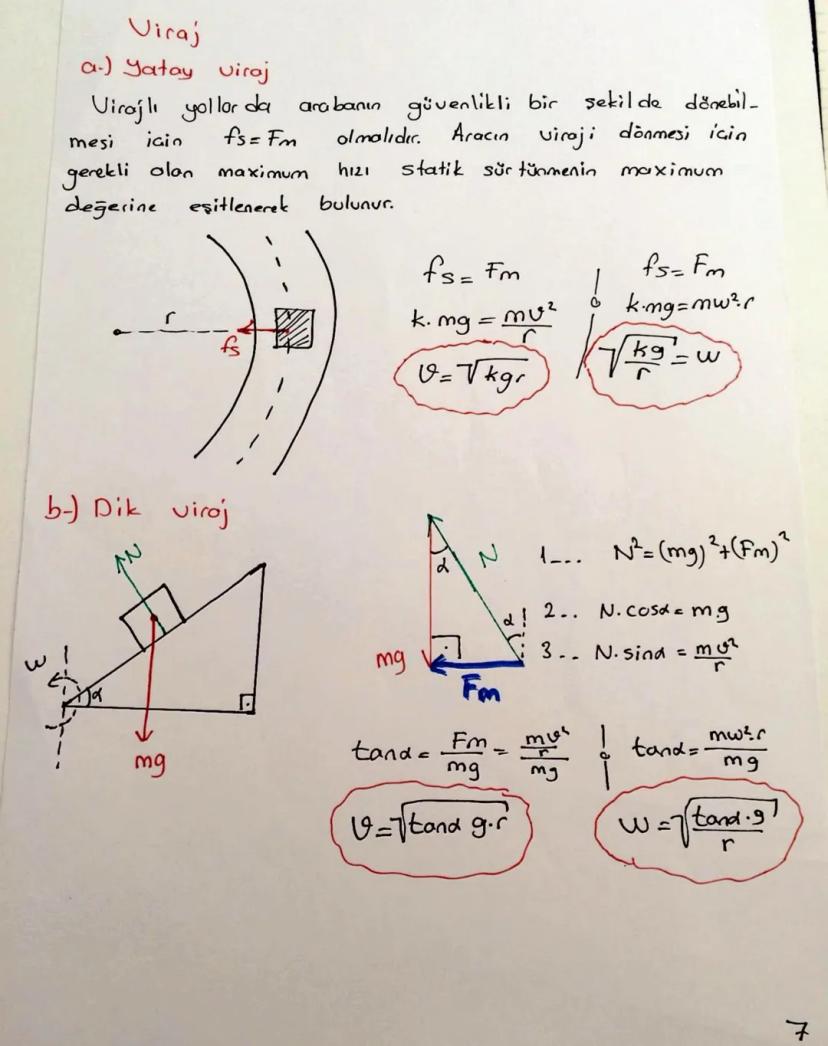 Viraj
a-) Yatay viraj
Virajlı yollarda arabanın güvenlikli bir şekilde dönebil-
mesi için fs = Fm olmalıdır. Aracın viraji dönmesi için
gerekli olan maximum hızı statik sürtünmenin maximum
değerine eşitlenerek bulunur.
r
fs
fs = Fm
k.mg = mv²/r
v = √kgr
fs = Fm
k.mg = mw².r
√kg/r = w
b-) Dik viraj
N
w
α
mg
α
N
α
mg
Fm
1... N² = (mg)² + (Fm)²
2.. N.cosα = mg
3.. N.sinα = mv²/r
tanα = Fm/mg = mv²/r/mg
v = √tanα g.r
tanα = mw².r/mg
w = √tanα.g/r
7